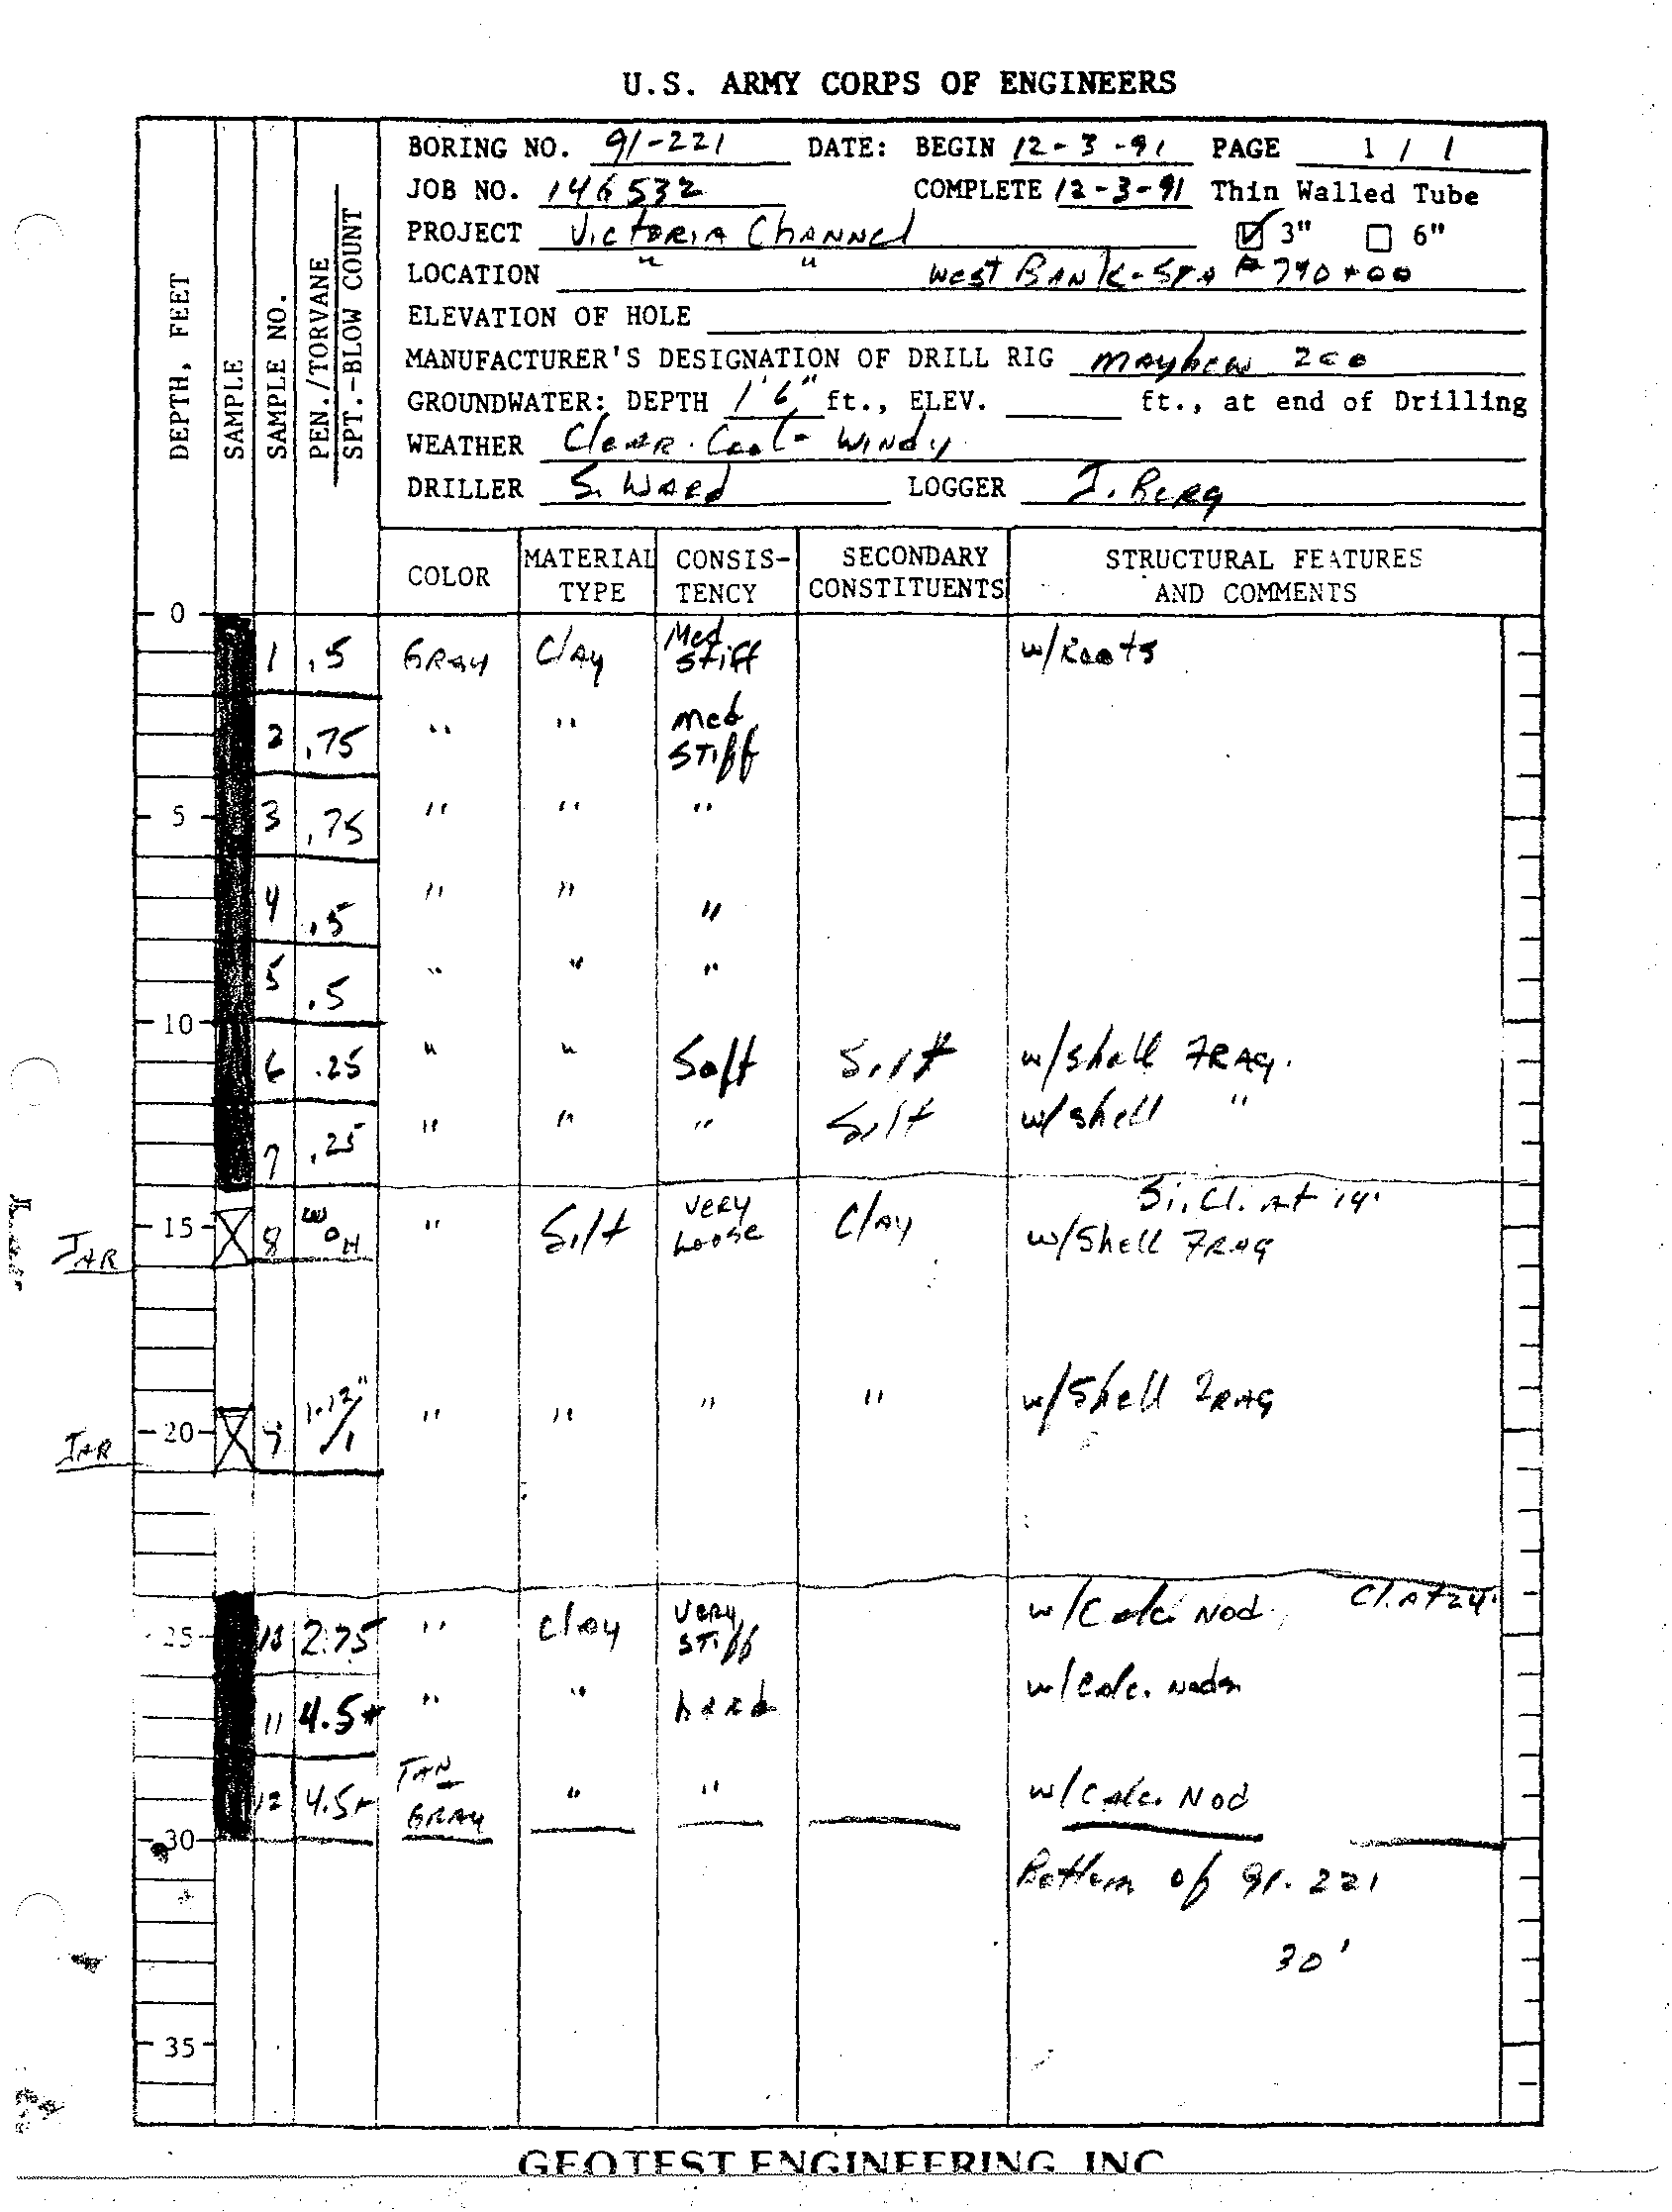 U.S. ARMY CORPS OF ENGINEERS
BORING NO. 91-221 DATE: BEGIN 12-3-91 PAGE 1 / 1
JOB NO. 146532 COMPLETE 12-3-91 Thin Walled Tube
PROJECT Victoria Channel ☑ 3" ☐ 6"
LOCATION " " West Bank - STA 790+00
ELEVATION OF HOLE
MANUFACTURER'S DESIGNATION OF DRILL RIG Mayhew 200
GROUNDWATER: DEPTH 1'6" ft., ELEV. ft., at end of Drilling
WEATHER Clear. Cool - Windy
DRILLER S. Ward LOGGER J. Berg
DEPTH, FEET
SAMPLE
SAMPLE NO.
PEN./TORVANE
SPT.-BLOW COUNT
COLOR MATERIAL TYPE CONSIS-TENCY SECONDARY CONSTITUENTS STRUCTURAL FEATURES AND COMMENTS
0
1 .5 Gray Clay Med. Stiff w/Roots
2 .75 " " Med. Stiff
5 3 .75 " " "
4 .5 " " "
5 .5 " " "
10
6 .25 " " Soft Silt w/shell Frag.
7 .25 " " " Silt w/shell "
Si. Cl. At 14'
Jar 15 8 WOH " Silt Very Loose Clay w/Shell Frag
Jar 20 9 1-12"/1 " " " " w/Shell Frag
Cl. At 24'
25 10 2.75 " Clay Very Stiff w/Calc. Nod.
11 4.5+ " " hard w/Calc. Nods
12 4.5+ Tan Gray " " w/Calc. Nod
30
Bottom of 91-221
30'
35
GEOTEST ENGINEERING, INC